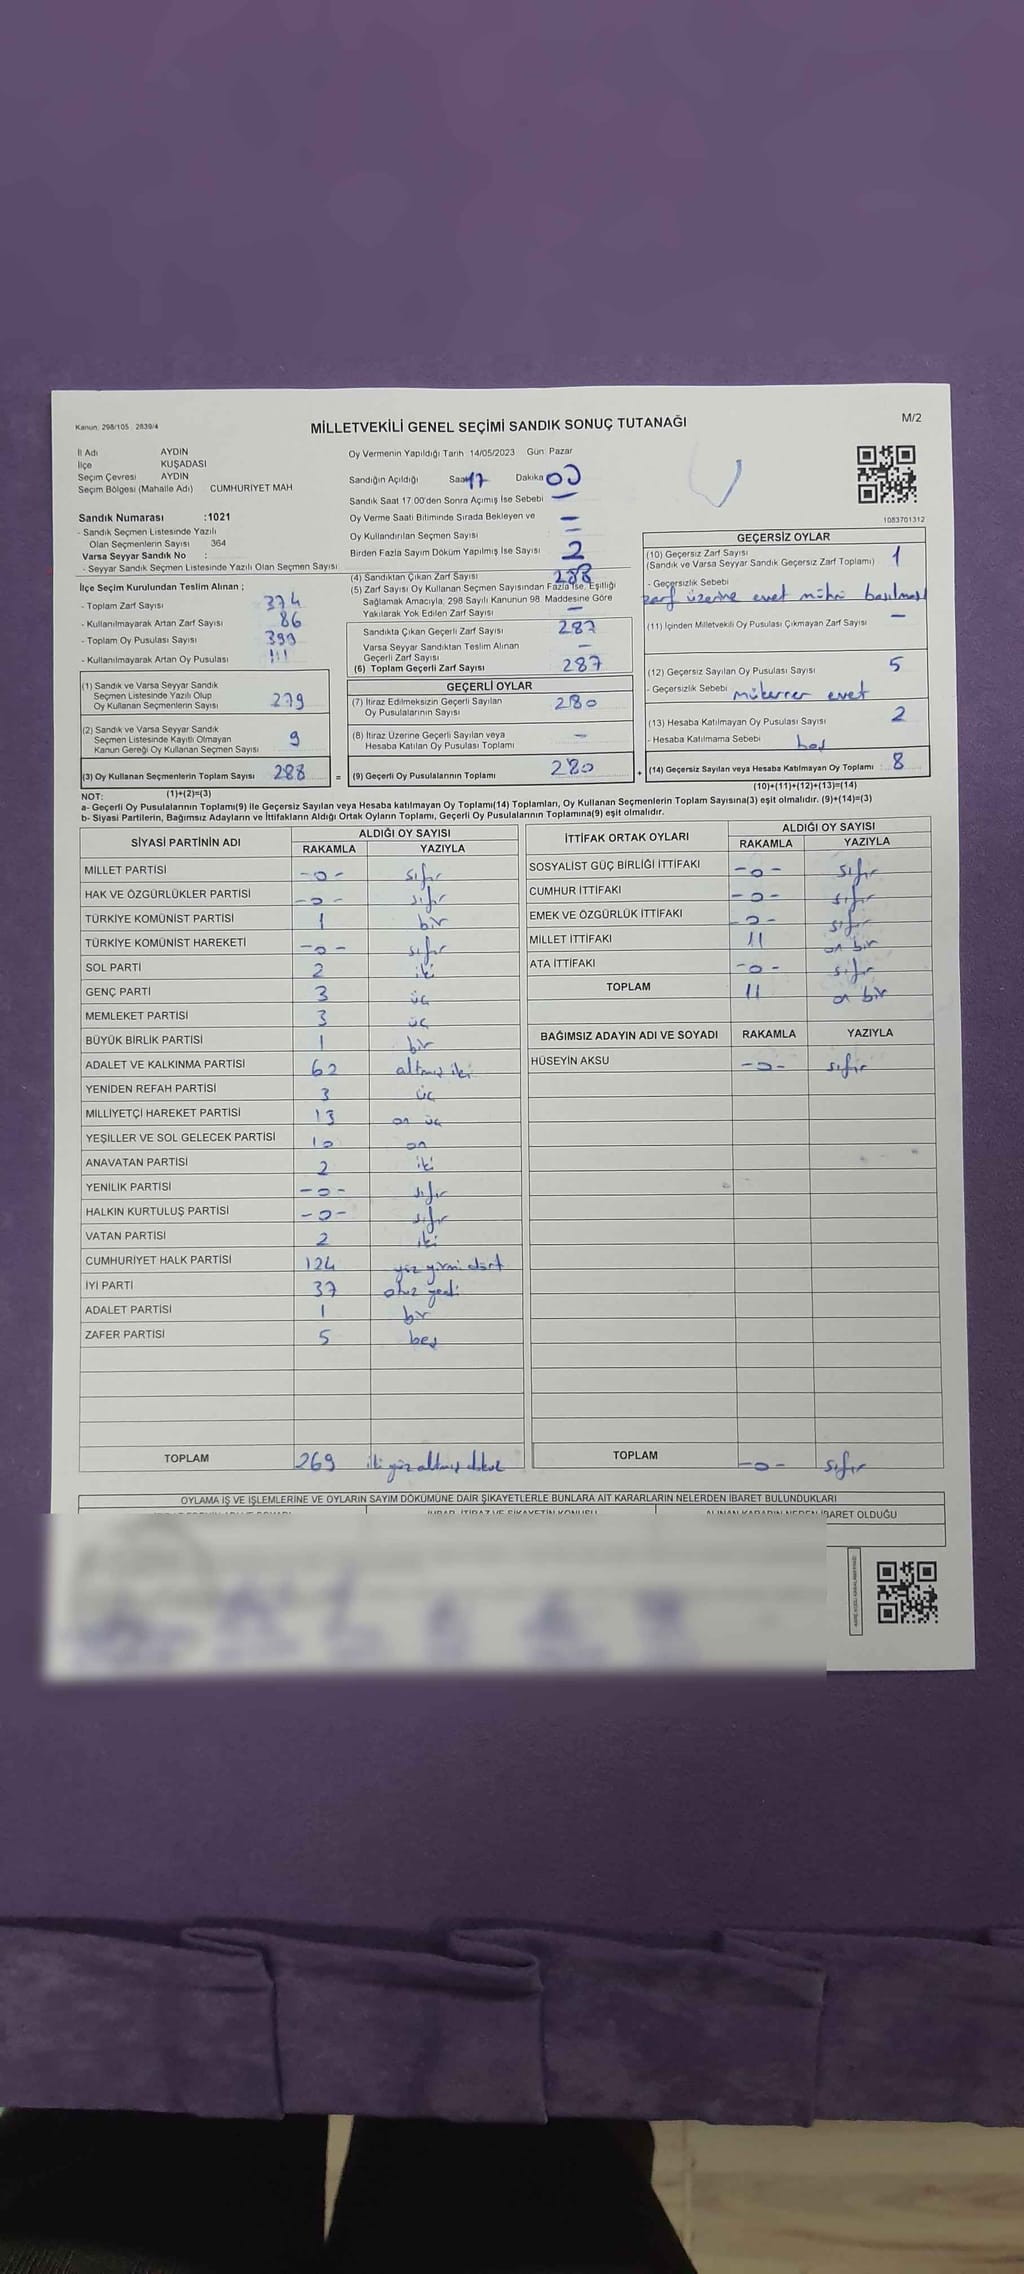 Kanun: 298/105, 2839/4
MİLLETVEKİLİ GENEL SEÇİMİ SANDIK SONUÇ TUTANAĞI
M/2
İl Adı AYDIN
İlçe KUŞADASI
Seçim Çevresi AYDIN
Seçim Bölgesi (Mahalle Adı) CUMHURİYET MAH
Sandık Numarası :1021
- Sandık Seçmen Listesinde Yazılı
Olan Seçmenlerin Sayısı 364
Varsa Seyyar Sandık No :
- Seyyar Sandık Seçmen Listesinde Yazılı Olan Seçmen Sayısı:
Oy Vermenin Yapıldığı Tarih 14/05/2023 Gün: Pazar
Sandığın Açıldığı Saat 17 Dakika 00
Sandık Saat 17:00'den Sonra Açımış İse Sebebi —
Oy Verme Saati Bitiminde Sırada Bekleyen ve —
Oy Kullandırılan Seçmen Sayısı —
Birden Fazla Sayım Döküm Yapılmış İse Sayısı 2
1083701312
İlçe Seçim Kurulundan Teslim Alınan ;
- Toplam Zarf Sayısı 374
- Kullanılmayarak Artan Zarf Sayısı 86
- Toplam Oy Pusulası Sayısı 399
- Kullanılmayarak Artan Oy Pusulası 111
(1) Sandık ve Varsa Seyyar Sandık
Seçmen Listesinde Yazılı Olup
Oy Kullanan Seçmenlerin Sayısı 279
(2) Sandık ve Varsa Seyyar Sandık
Seçmen Listesinde Kayıtlı Olmayan
Kanun Gereği Oy Kullanan Seçmen Sayısı 9
(3) Oy Kullanan Seçmenlerin Toplam Sayısı 288 =
(4) Sandıktan Çıkan Zarf Sayısı 288
(5) Zarf Sayısı Oy Kullanan Seçmen Sayısından Fazla İse, Eşitliği
Sağlamak Amacıyla; 298 Sayılı Kanunun 98. Maddesine Göre
Yakılarak Yok Edilen Zarf Sayısı —
Sandıkta Çıkan Geçerli Zarf Sayısı 287
Varsa Seyyar Sandıktan Teslim Alınan
Geçerli Zarf Sayısı —
(6) Toplam Geçerli Zarf Sayısı 287
GEÇERLİ OYLAR
(7) İtiraz Edilmeksizin Geçerli Sayılan
Oy Pusulalarının Sayısı 280
(8) İtiraz Üzerine Geçerli Sayılan veya
Hesaba Katılan Oy Pusulası Toplamı —
(9) Geçerli Oy Pusulalarının Toplamı 280 +
GEÇERSİZ OYLAR
(10) Geçersiz Zarf Sayısı
(Sandık ve Varsa Seyyar Sandık Geçersiz Zarf Toplamı) 1
- Geçersizlik Sebebi
zarf üzerine evet mührü basılması
(11) İçinden Milletvekili Oy Pusulası Çıkmayan Zarf Sayısı —
(12) Geçersiz Sayılan Oy Pusulası Sayısı 5
- Geçersizlik Sebebi mükerrer evet
(13) Hesaba Katılmayan Oy Pusulası Sayısı 2
- Hesaba Katılmama Sebebi boş
(14) Geçersiz Sayılan veya Hesaba Katılmayan Oy Toplamı 8
NOT: (1)+(2)=(3) (10)+(11)+(12)+(13)=(14)
a- Geçerli Oy Pusulalarının Toplamı(9) ile Geçersiz Sayılan veya Hesaba katılmayan Oy Toplamı(14) Toplamları, Oy Kullanan Seçmenlerin Toplam Sayısına(3) eşit olmalıdır. (9)+(14)=(3)
b- Siyasi Partilerin, Bağımsız Adayların ve İttifakların Aldığı Ortak Oyların Toplamı, Geçerli Oy Pusulalarının Toplamına(9) eşit olmalıdır.
SİYASİ PARTİNİN ADI ALDIĞI OY SAYISI
RAKAMLA YAZIYLA
MİLLET PARTİSİ -0- sıfır
HAK VE ÖZGÜRLÜKLER PARTİSİ -0- sıfır
TÜRKİYE KOMÜNİST PARTİSİ 1 bir
TÜRKİYE KOMÜNİST HAREKETİ -0- sıfır
SOL PARTİ 2 iki
GENÇ PARTİ 3 üç
MEMLEKET PARTİSİ 3 üç
BÜYÜK BİRLİK PARTİSİ 1 bir
ADALET VE KALKINMA PARTİSİ 62 altmış iki
YENİDEN REFAH PARTİSİ 3 üç
MİLLİYETÇİ HAREKET PARTİSİ 13 on üç
YEŞİLLER VE SOL GELECEK PARTİSİ 10 on
ANAVATAN PARTİSİ 2 iki
YENİLİK PARTİSİ -0- sıfır
HALKIN KURTULUŞ PARTİSİ -0- sıfır
VATAN PARTİSİ 2 iki
CUMHURİYET HALK PARTİSİ 124 yüz yirmi dört
İYİ PARTİ 37 otuz yedi
ADALET PARTİSİ 1 bir
ZAFER PARTİSİ 5 beş
TOPLAM 269 iki yüz altmış dokuz
İTTİFAK ORTAK OYLARI ALDIĞI OY SAYISI
RAKAMLA YAZIYLA
SOSYALİST GÜÇ BİRLİĞİ İTTİFAKI -0- sıfır
CUMHUR İTTİFAKI -0- sıfır
EMEK VE ÖZGÜRLÜK İTTİFAKI -0- sıfır
MİLLET İTTİFAKI 11 on bir
ATA İTTİFAKI -0- sıfır
TOPLAM 11 on bir
BAĞIMSIZ ADAYIN ADI VE SOYADI RAKAMLA YAZIYLA
HÜSEYİN AKSU -0- sıfır
TOPLAM -0- sıfır
OYLAMA İŞ VE İŞLEMLERİNE VE OYLARIN SAYIM DÖKÜMÜNE DAİR ŞİKAYETLERLE BUNLARA AİT KARARLARIN NELERDEN İBARET BULUNDUKLARI
İHBAR, İTİRAZ VE ŞİKAYETİN KONUSU ALINAN KARARIN NEDEN İBARET OLDUĞU